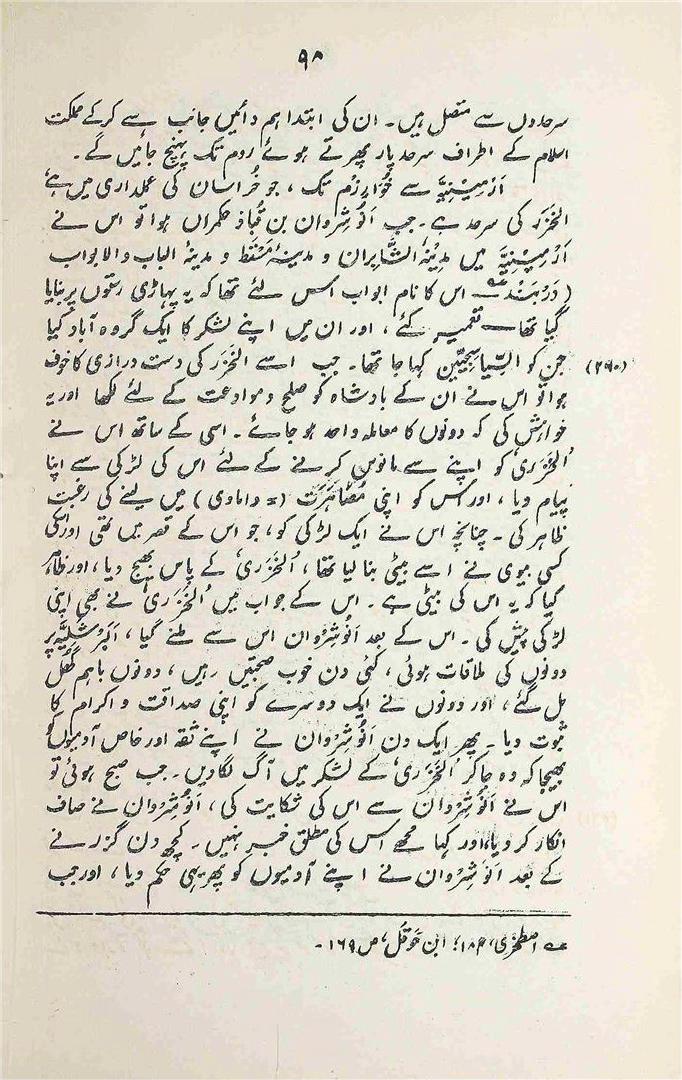 ۹۸
سرحدوں سے متصل ہیں۔ ان کی ابتدا ہم دائیں جانب سے کرکے مملکت
اسلام کے اطراف سرحد پار پھرتے ہوئے روم تک پہنچ جائیں گے۔
اَرْمِیْنِیَّہ سے خُوَارِزْم تک، جو خُراسان کی عملداری میں ہے
الخَزَر کی سرحد ہے۔ جب اَنُوْشِرْوان بن قُباذ حکمراں ہوا تو اس نے
اَرْمِیْنِیَّہ میں مدینۂ الشَّابران و مدینۂ مَسْقَط و مدینۂ الباب والابواب
(دَرْبَنْد؎ اس کا نام ابواب اس لئے تھا کہ یہ پہاڑی رستوں پر بنایا
گیا تھا— تعمیر کئے، اور ان میں اپنے لشکر کا ایک گروہ آباد کیا
جن کو السِّیَاسِیْجِیْن کہا جاتا تھا۔ جب اسے الخَزَر کی دست درازی کا خوف (۲۶۰)
ہوا تو اس نے ان کے بادشاہ کو صلح و موادعت کے لئے لکھا اور یہ
خواہش کی کہ دونوں کا معاملہ واحد ہو جائے۔ اسی کے ساتھ اس نے
اُلخَزَری کو اپنے سے مانوس کرنے کے لئے اس کی لڑکی سے اپنا
پیام دیا، اور اس کو اپنی مُصَاہَرَت (= دامادی) میں لینے کی رغبت
ظاہر کی۔ چنانچہ اس نے ایک لڑکی کو، جو اس کے قصر میں تھی اور اس کی
کسی بیوی نے اسے بیٹی بنا لیا تھا، اُلخَزَری کے پاس بھیج دیا، اور ظاہر
کیا کہ یہ اس کی بیٹی ہے۔ اس کے جواب میں اُلخَزَری نے بھی اپنی
لڑکی پیش کی۔ اس کے بعد اَنُوْشِرْوان اس سے ملنے گیا، اَلبَرْشَلِیَّہ پر
دونوں کی ملاقات ہوئی، کئی دن خوب صحبتیں رہیں، دونوں باہم گھل
مل گئے، اور دونوں نے ایک دوسرے کو اپنی صداقت و اکرام کا
ثبوت دیا۔ پھر ایک دن اَنُوْشِرْوان نے اپنے ثقہ اور خاص آدمیوں کو
بھیجا کہ وہ جا کر اُلخَزَری کے لشکر میں آگ لگادیں۔ جب صبح ہوئی تو
اس نے اَنُوْشِرْوان سے اس کی شکایت کی، اَنُوْشِرْوان نے صاف
انکار کر دیا، اور کہا مجھے اس کی مطلق خبر نہیں۔ کچھ دن گزرنے
کے بعد اَنُوْشِرْوان نے اپنے آدمیوں کو پھر یہی حکم دیا، اور جب
؎ اصطخری، ۱۸۴؛ ابن حَوقَل، ص ۱۶۹۔